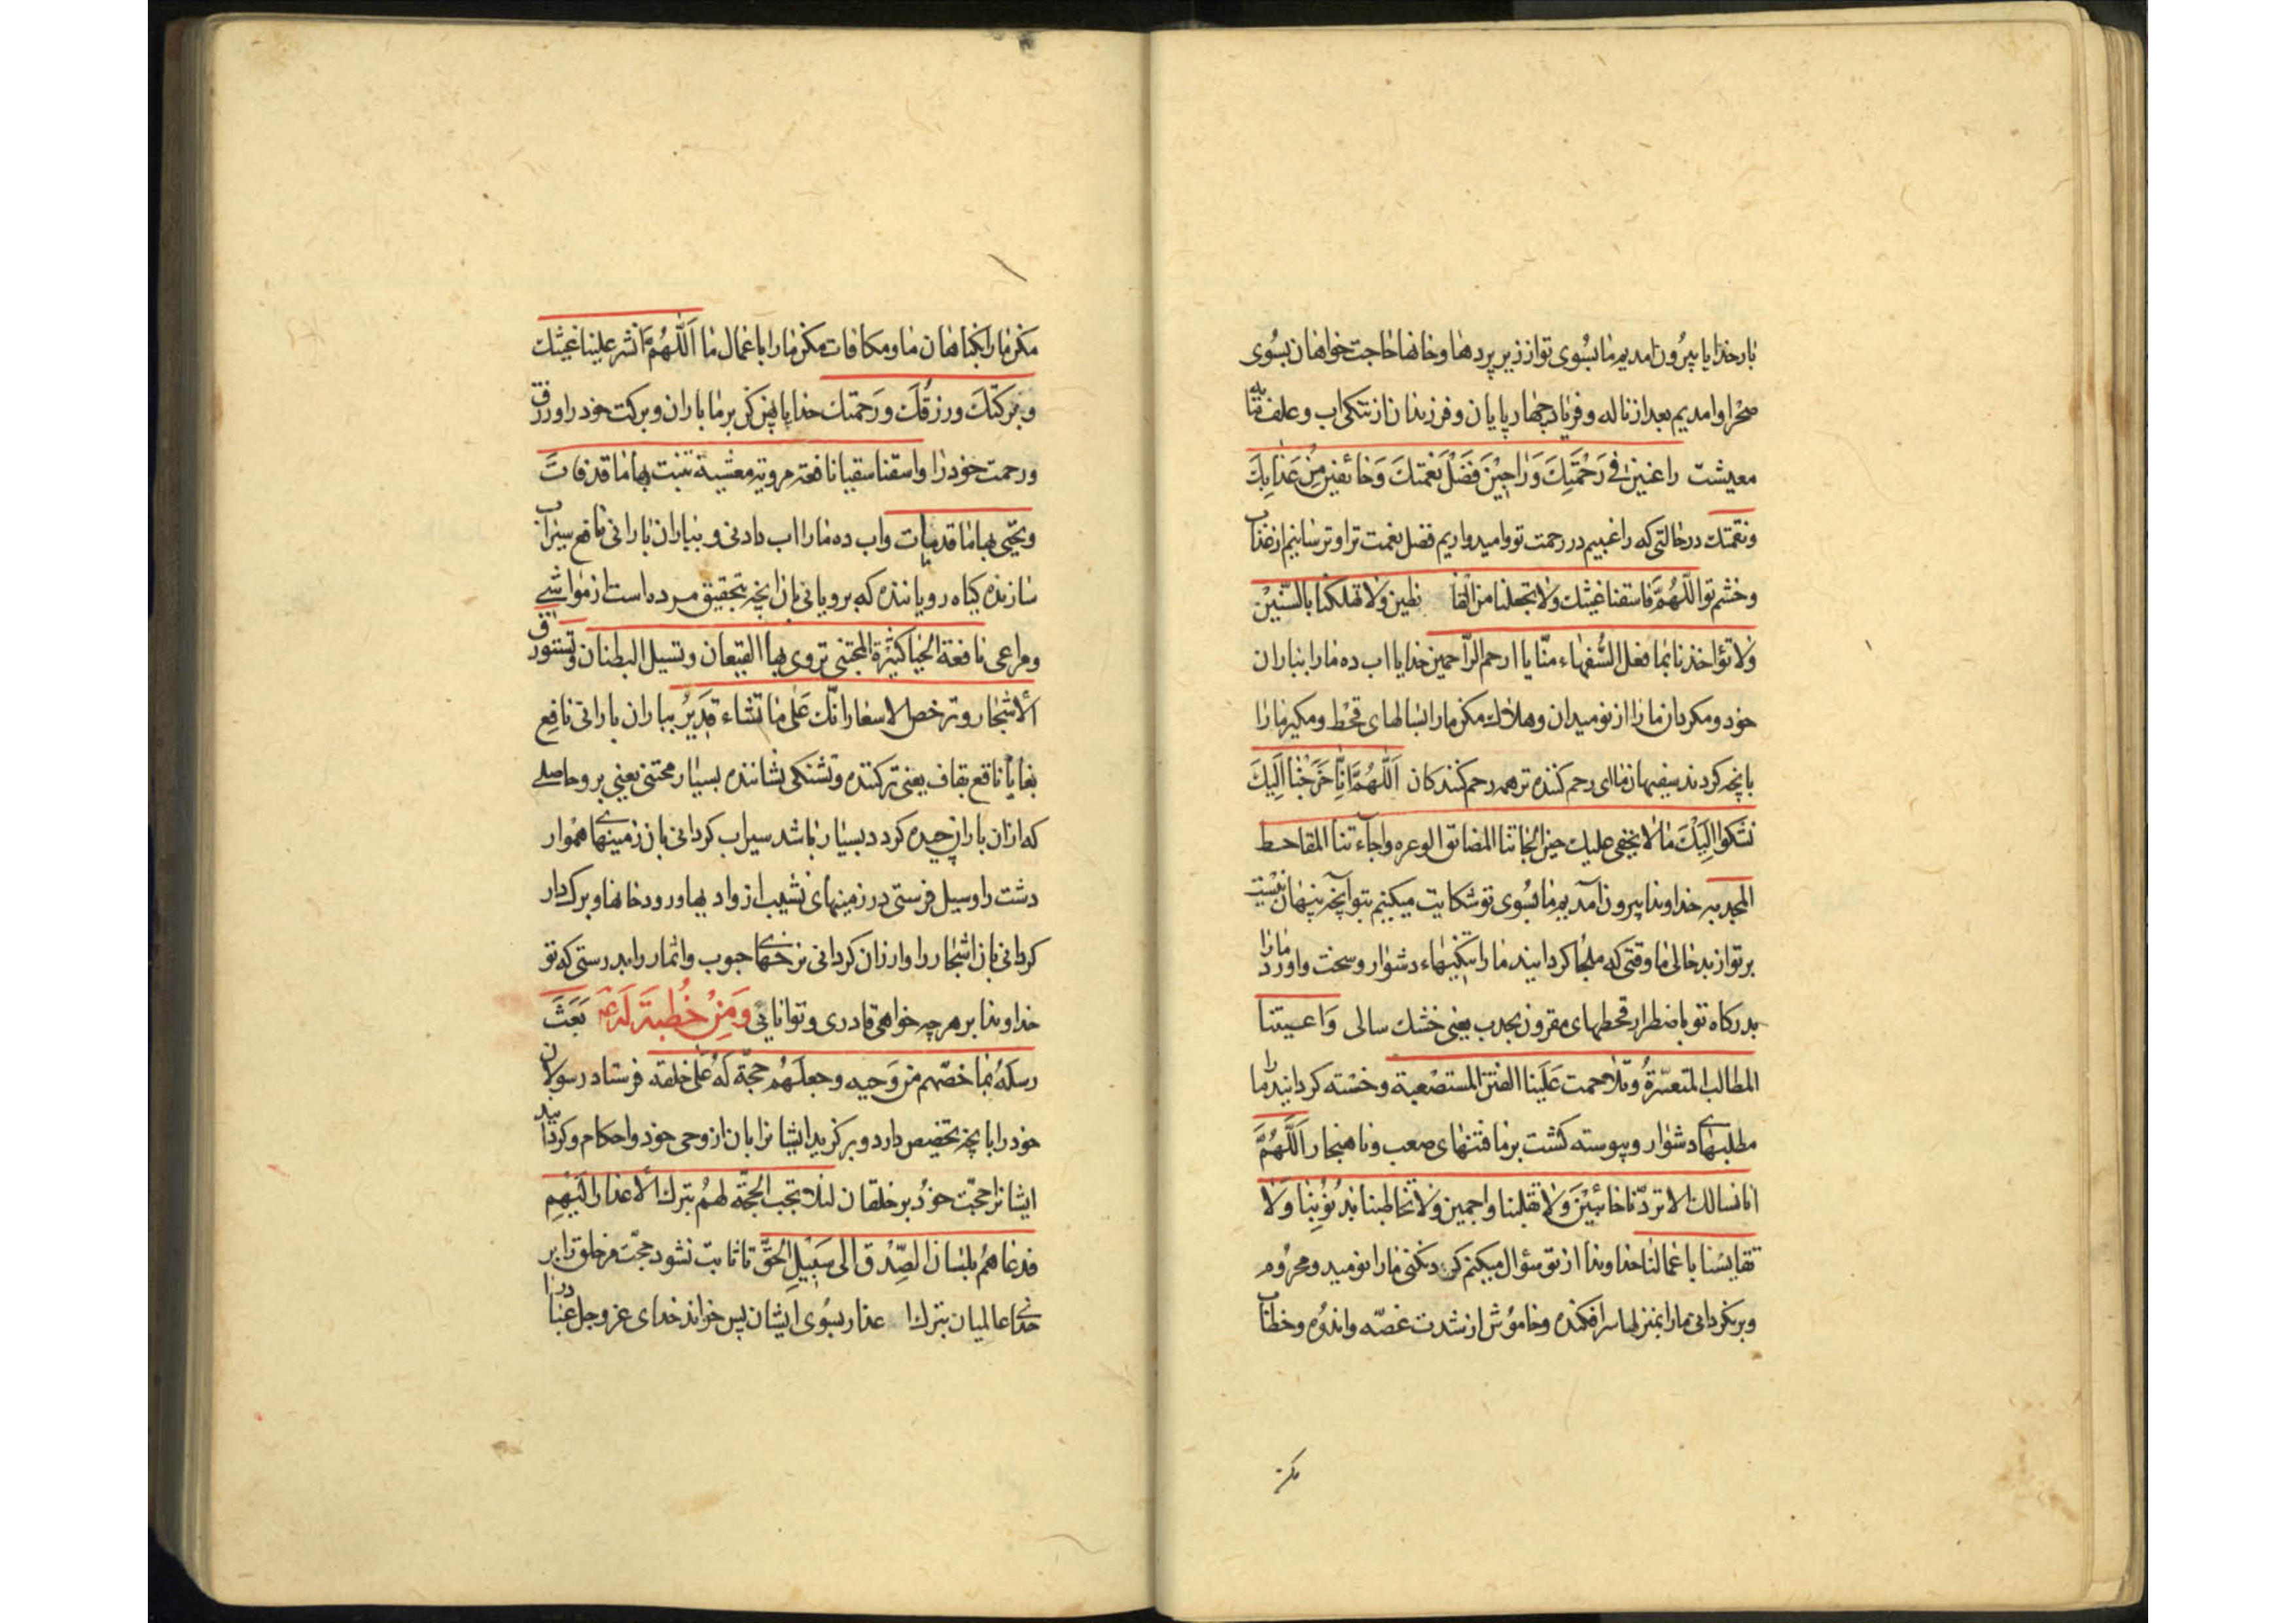 بار خدایا بیرون امدیم ما بسوی تو از زیر پردها و خانها حاجت خواهان بسوی
صحرا و امدیم بعد از ناله و فریاد چهارپایان و فرزندان از تنکی اب و علف تنکیه
معیشت راغبین فی رَحْمَتِكَ وَ راجِیْنَ فَضْلَ نِعْمَتِكَ وَ خائفین مِنْ عَذابِكَ
و نقمتك در حالتی که راغبیم در رحمت تو و امیدواریم فضل نعمت ترا و ترسانیم از عذاب
و خشم تو اللّهُمَّ فاسقنا غیثك ولا تجعلنا من القا نطین ولا تهلکنا بالسّنین
ولا تؤاخذنا بما فعل السُّفهاء منّا یا ارحم الرّاحمین خدایا اب ده ما را بباران
خود و مکردان ما را از نومیدان و هلاك مکن ما را بسالهای قحط و مکیر ما را
بانچه کردند سفیهان ما ای رحم کننده تر همه رحم کنندکان اَللّهُمَّ اِنّا خَرَجْنا اِلَیكَ
نشکوا اِلَیْكَ ما لا یخفی علیك حین الجاتنا المضائق الوعره و اجآءتنا المقاحط
المجدبه خداوندا بیرون آمدیم ما بسوی تو شکایت میکنیم بتو آنچه پنهان نیست
بر تو از بد حالی ما وقتی که ملجا کردانیند ما را تنکیهاء دشوار و سخت و اورد ما را
بدرکاه تو باضطرار قحطهای مقرون بجدب یعنی خشك سالی وَ اعیتنا
المطالب المتعسّرةُ و تلاحمت عَلَینا الفتن المستصعبة و خسته کردانید ما را
مطلبهای دشوار و پیوسته کشت بر ما فتنهای صعب و ناهنجار اَللّهُمَّ
انا نسالك ان لا تردّنا خائبیْنَ وَلا تقلبنا واجمین وَلا تخاطبنا بذُنُوْبِنا وَلا
تقایسْنا باعمالنا خداوندا از تو سؤال میکنم که رد نکنی ما را نومید و محرُوم
و برنکردانی ما را بمنزلها سرافکنده و خامُوش از شدت غصّه و اندُوه و خطاب
مکن
مکن ما را بکناهان ما و مکافات مکن ما را باعمال ما اَللّهُمَّ انشر علینا غیثك
و برکتكَ و رزقكَ و رَحمتك خدایا پهن کن بر ما باران و برکت خود را و رزق
و رحمت خود را و اسقنا سقیا نافعة مرویة معشبة تنبت بها ما قد فاتَ
و تحیی بها ما قد مات و اب ده ما را اب دادنی و بباران بارانی نافع سیراب
سازنده کیاه رویاننده که برویانی بان انچه بتحقیق مرده است از مواشی
و مراعی نافعة الحیا کثیرة المجتنی تروی بها القیعان و تسیل البطنان و تستورق
الأشجار و ترخص الاسعار انّك عَلی ما تشاء قدیرٌ بباران بارانی نافع
بغایا ناقع بقاف یعنی تر کننده و تشنکی نشاننده بسیار مجتنی یعنی بر و حاصلی
که ازان باران چیده کردد بسیار باشد سیراب کردانی بان زمینهای هموار
دشت را و سیل فرستی در زمینهای نشیب از وادیها و رودخانها و برك دار
کردانی بان اشجار را و ارزان کردانی نرخهای حبوب و اثمار را بدرستی که تو
خداوندا بر هر چه خواهی قادری و توانایی وَمِنْ خُطبَة لَهُ ع بَعَثَ
رسله بما خصّهم من وَحیه و جعلهُم حجّة لَهُ عَلی خلقه فرستاد رسولان
خود را بانچه تخصیص داد و برکزید ایشانرا بان از وحی خود و احکام و کردانید
ایشانرا حجّت خود بر خلقان لئلا تجب الحجّة لهمُ بترك الأعذار اِلَیْهِم
فدعاهُم بلسان الصِّدْق اِلی سَبِیْلِ الحَقّ تا ثابت نشود حجّت مر خلق را بر
خدای عالمیان بترك اعذار بسُوی ایشان پس خواند خدای عز و جل عبادرا